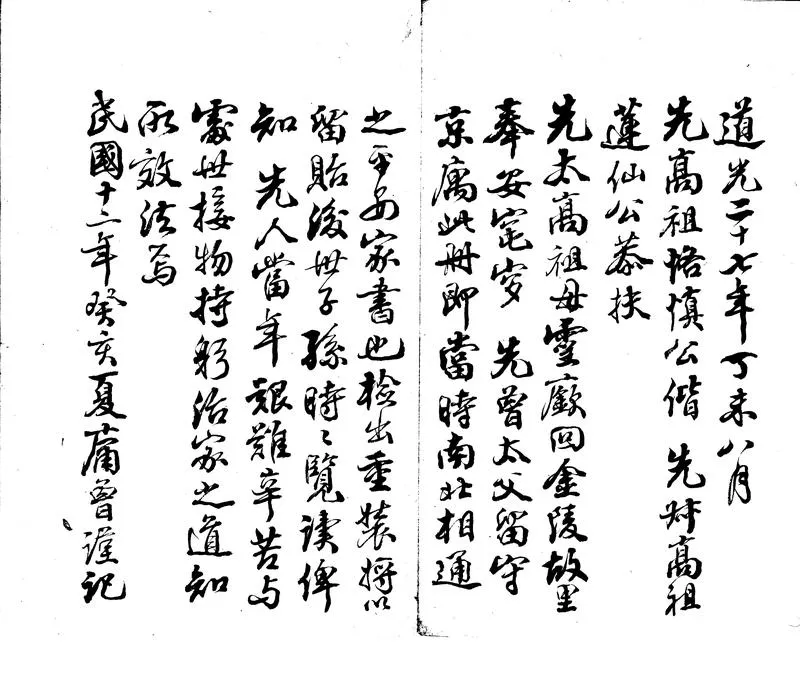 道光二十七年丁未八月
先高祖恪慎公偕 先叔高祖
蓮仙公恭扶
先太高祖母靈廞回金陵故里
奉安窀穸 先曾太父留守
京寓此冊即當時南北相通
之平安家書也檢出重裝將以
留貽後世子孫時々覽讀俾
知 先人當年艱難辛苦与
處世接物持躬治家之道知
所效法焉
民國十二年癸亥夏蒲曾謹記